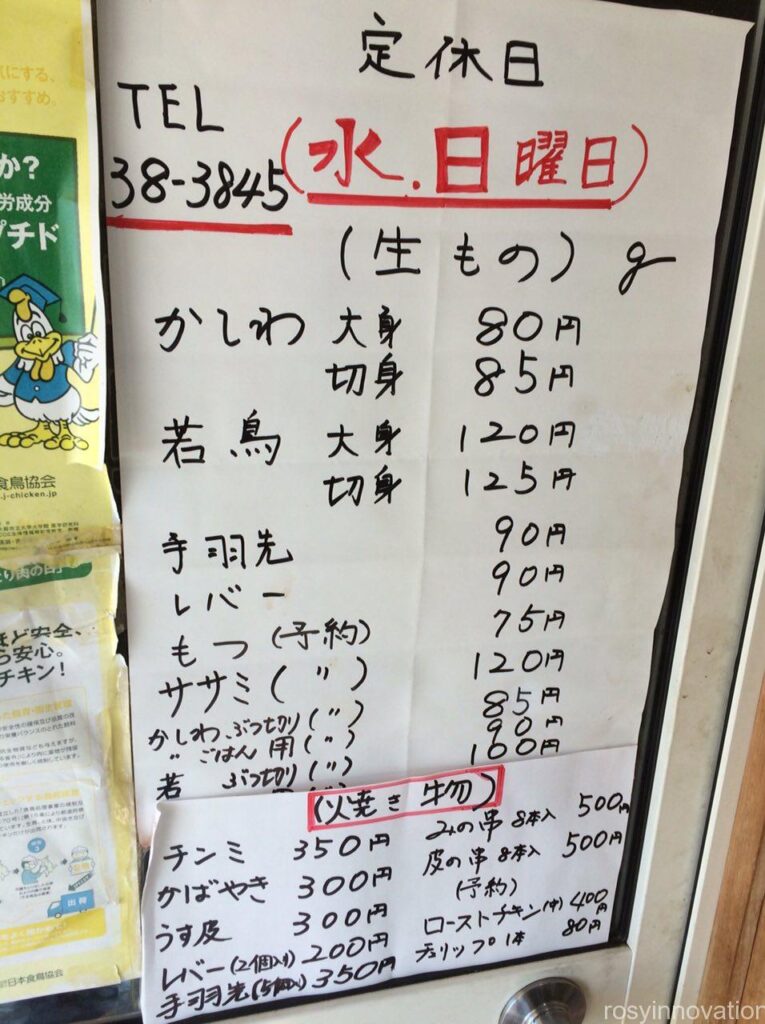 定休日
TEL
38-3845
(水.日曜日)
(生もの) g
かしわ 大身 80円
切身 85円
若鳥 大身 120円
切身 125円
手羽先 90円
レバー 90円
もつ (予約) 75円
ササミ (〃) 120円
かしわ ぶつ切り (〃) 85円
〃 ごはん用 (〃) 90円
若 ぶつ切り (〃) 100円
(焼き物)
チンミ 350円
かばやき 300円
うす皮 300円
レバー (2個入り) 200円
手羽先 (5個入) 350円
みの串 8本入 500円
皮の串 8本入 500円
(予約)
ローストチキン (中) 400円
チュリップ 1本 80円
にする、
おすすめ。
か?
労成分
プチド
食鳥協会
.j-chicken.jp
り肉の日」
ほど安全、
ら安心。
チキン!
出荷
日本食鳥協会
rosyinnovation